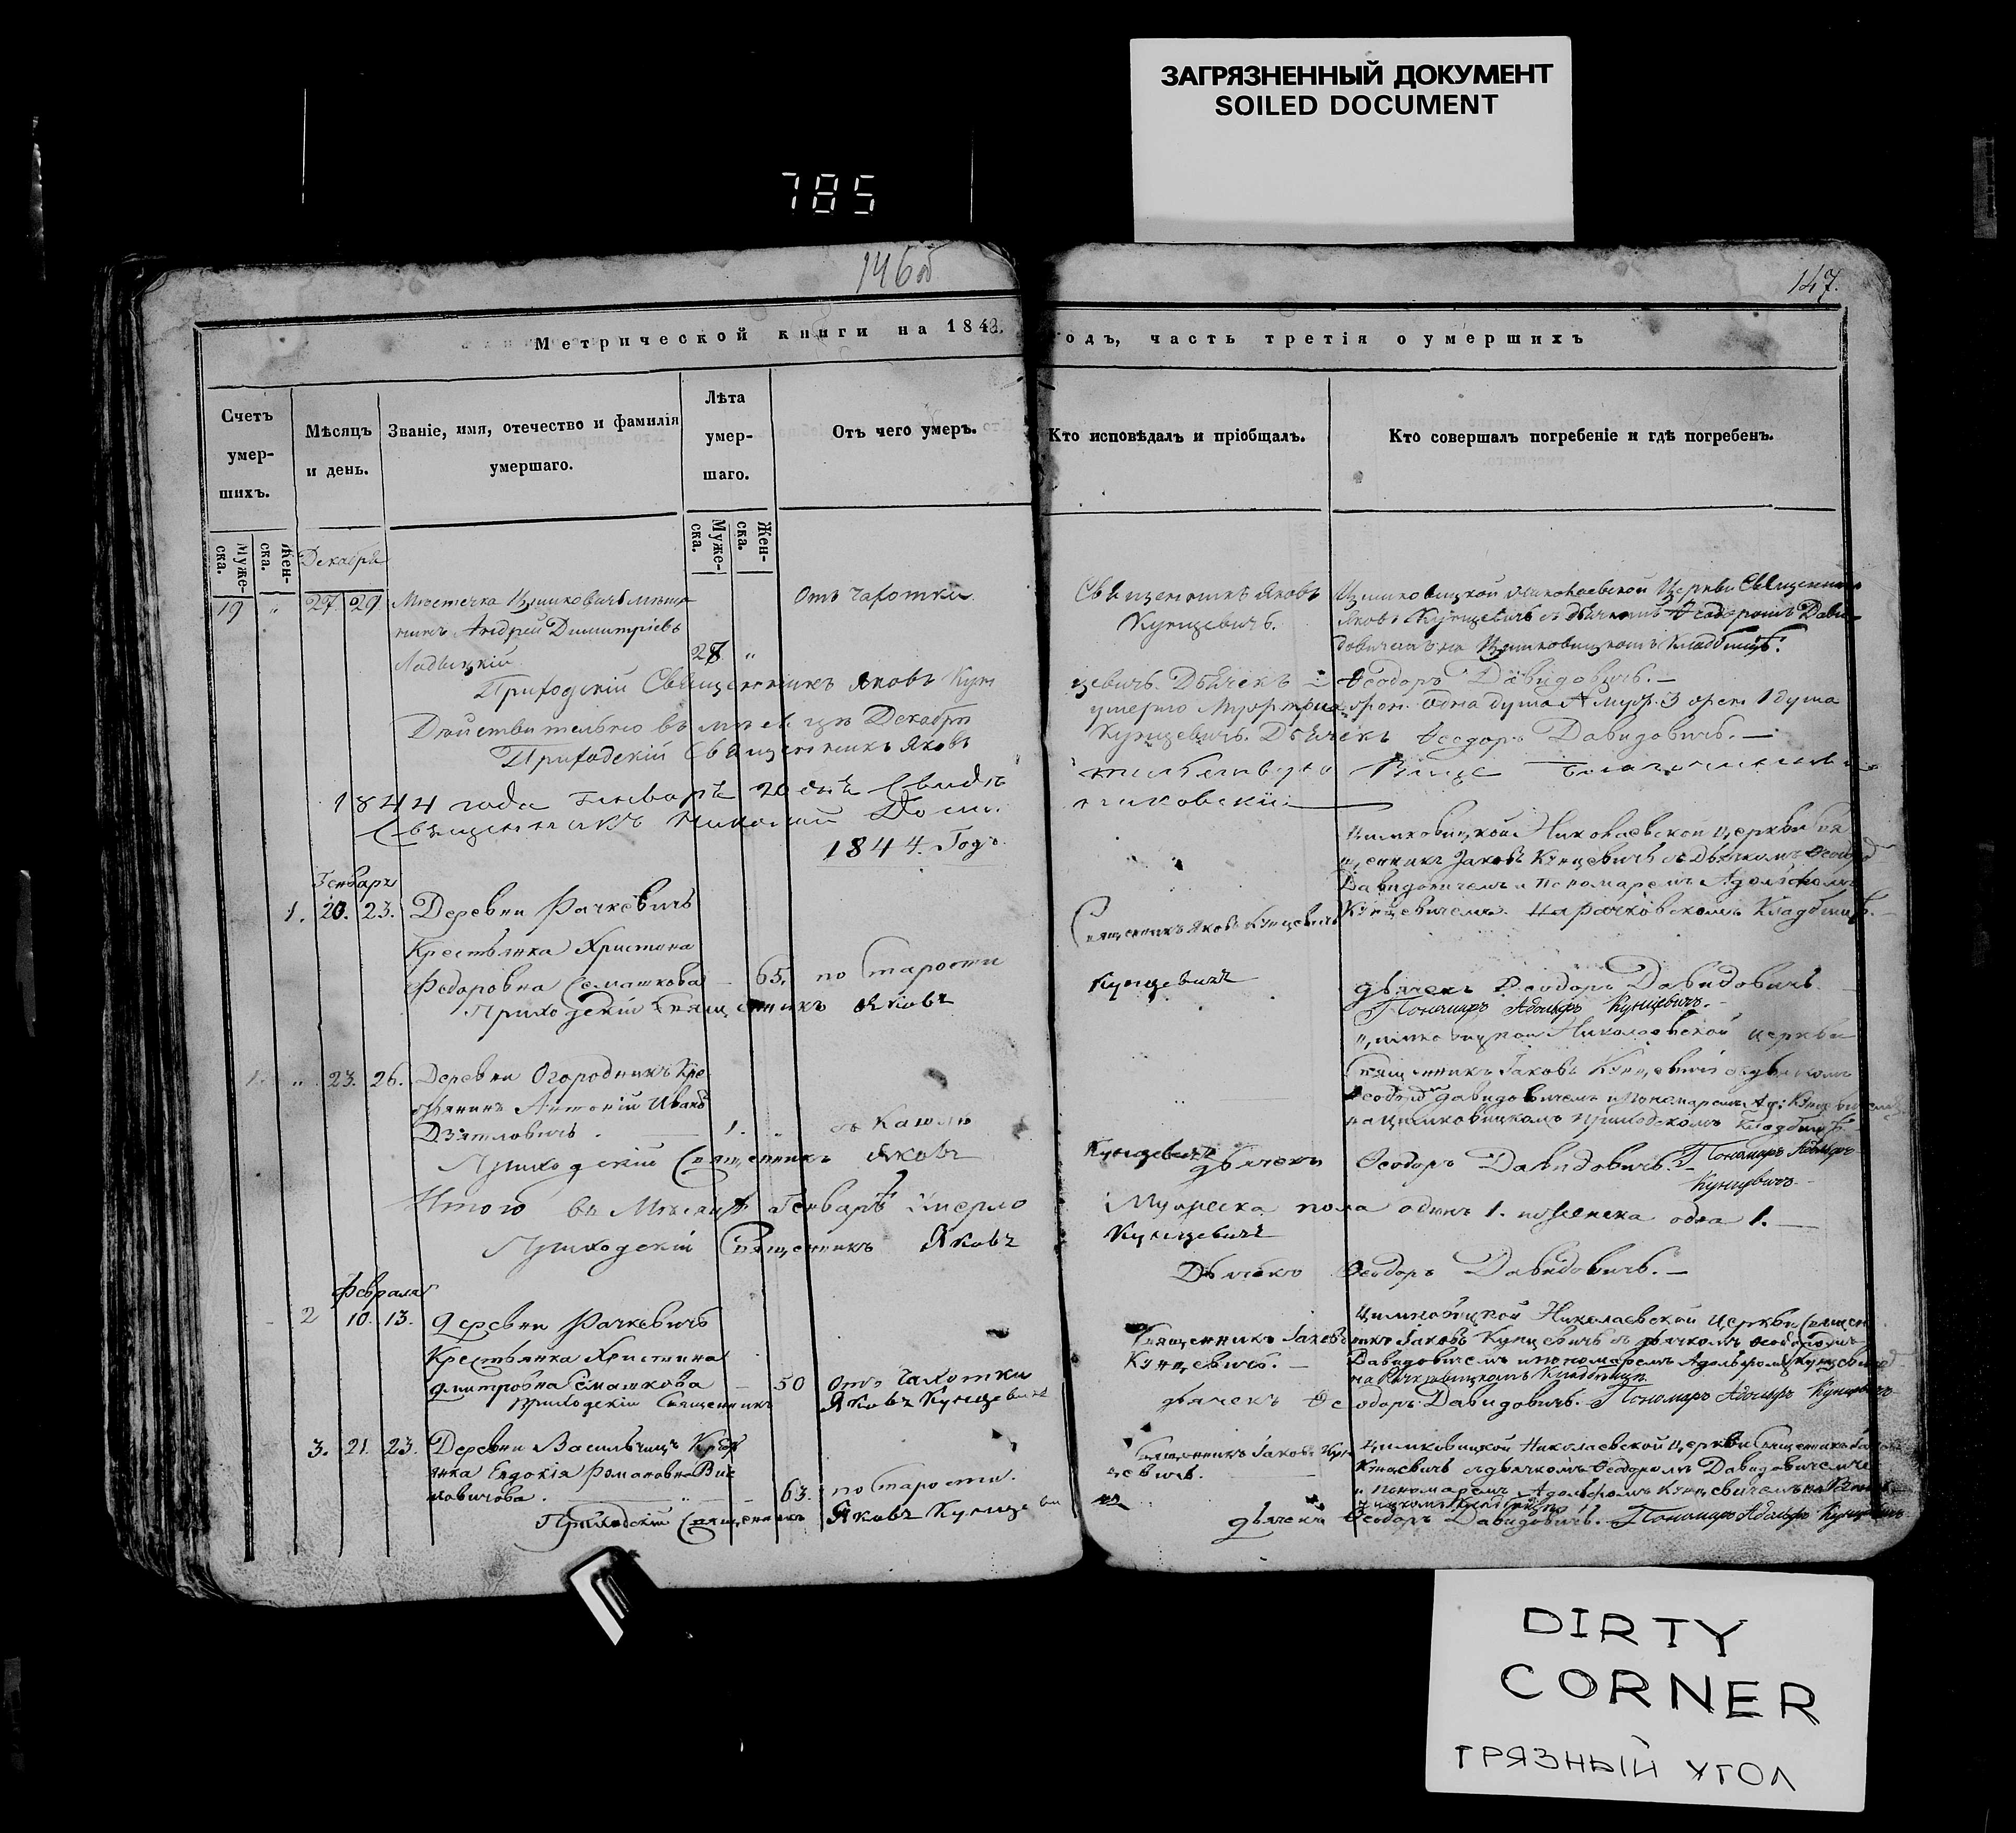 ЗАГРЯЗНЕННЫЙ ДОКУМЕНТ
SOILED DOCUMENT
785
146об
147.
Метрической книги на 1843. годъ, часть третія о умершихъ
Счетъ умер-шихъ.
Мѣсяцъ и день.
Званіе, имя, отечество и фамилія умершаго.
Лѣта умер-шаго.
Отъ чего умеръ.
Кто исповѣдалъ и пріобщалъ.
Кто совершалъ погребеніе и гдѣ погребенъ.
Муже-ска.
Жен-ска.
Муже-ска.
Жен-ска.
Декабрь
19 " 27 29 Мѣстечка Цимковичъ мѣща-
нинъ Андрей Димитріевъ
28 "
Отъ чахотки
Священникъ Яковъ
Кунцевичъ.
Цимковицкой Николаевской Церкви Священникъ
Яковъ Кунцевичъ съ дьячкомъ Ѳеодоромъ Дави-
довичемъ на Цимковицкомъ Кладбищѣ.
Приходскій Священникъ Яковъ Кун
цевичъ. Дьячекъ Ѳеодоръ Давидовичъ.
Дѣйствительно въ мѣсяцѣ Декабрѣ
умерло
одна душа
1 душа
Приходскій Священникъ Яковъ
Кунцевичъ. Дьячекъ Ѳеодоръ Давидовичъ.
1844 года Генваря 20 дня
Священникъ Николай
1844. Годъ.
Генварь
1. 20. 23. Деревни Рачкевичъ
Крестьянка Христина
Федоровна Семашкова
65. по Старости
Священникъ Яковъ Кунцевичъ
Цимковицкой Николаевской церкви Свя
щенникъ Іаковъ Кунцевичъ съ дьячкомъ Ѳеодор
Давидовичемъ и Пономаремъ Адольфомъ
Кунцевичемъ. На рачковскомъ Кладбищѣ.
Приходскій Священникъ Яковъ
Кунцевичъ
дьячекъ Ѳеодоръ Давидовичъ
Пономарь Адольфъ Кунцевичъ.
1. " 23. 26. Деревни Огородникъ Кре
стьянинъ Антоній Ивановъ
Дзятловичъ.
1. "
съ Кашлю
Цимковицкой Николаевской церкви
Священникъ Іаковъ Кунцевичъ съ дьячкомъ
Ѳеодор Давидовичемъ и Пономаремъ Ад: Кунцевичемъ
на Цимковицкомъ приходскомъ Кладбищѣ
Приходскій Священникъ Яковъ
Кунцевичъ
дьячекъ Ѳеодоръ Давидовичъ. Пономарь Адольфъ
Кунцевичъ
Итого въ Мѣсяцѣ Генварѣ умерло
Мужеска пола одинъ 1. и Женска одна 1.
Приходскій Священникъ Яковъ
Кунцевичъ
Дьячекъ Ѳеодоръ Давидовичъ.
Февраль
2 10. 13. Деревни Рачкевичъ
Крестьянка Христинна
Дмитровна Семашкова
50 Отъ Чахотки
Священникъ Іаковъ
Кунцевичъ.
Цимковицкой Николаевской Церкви Священ
никъ Іаковъ Кунцевичъ съ дьячкомъ Ѳеодоромъ
Давидовичемъ и пономаремъ Адольфомъ Кунцевичемъ
на Рачковицкомъ Кладбищѣ
приходскій Священникъ Яковъ Кунцевичъ
дьячекъ Ѳеодоръ Давидовичъ. Пономарь Адольфъ Кунцевичъ
3. 21. 23. Деревни Васильчицъ Крест
янка Евдокія Романовна
63. по Старости.
Священникъ Іаковъ Кун
цевичъ.
Цимковицкой Николаевской Церкви Священникъ
Кунцевичъ съ дьячкомъ Ѳеодоромъ Давидовичемъ
и Пономаремъ Адольфомъ Кунцевичемъ
Приходскій Священникъ Яковъ Кунцеви
чъ
дьячекъ Ѳеодоръ Давидовичъ. Пономарь Адольфъ Кунцевичъ
DIRTY
CORNER
ГРЯЗНЫЙ УГОЛ